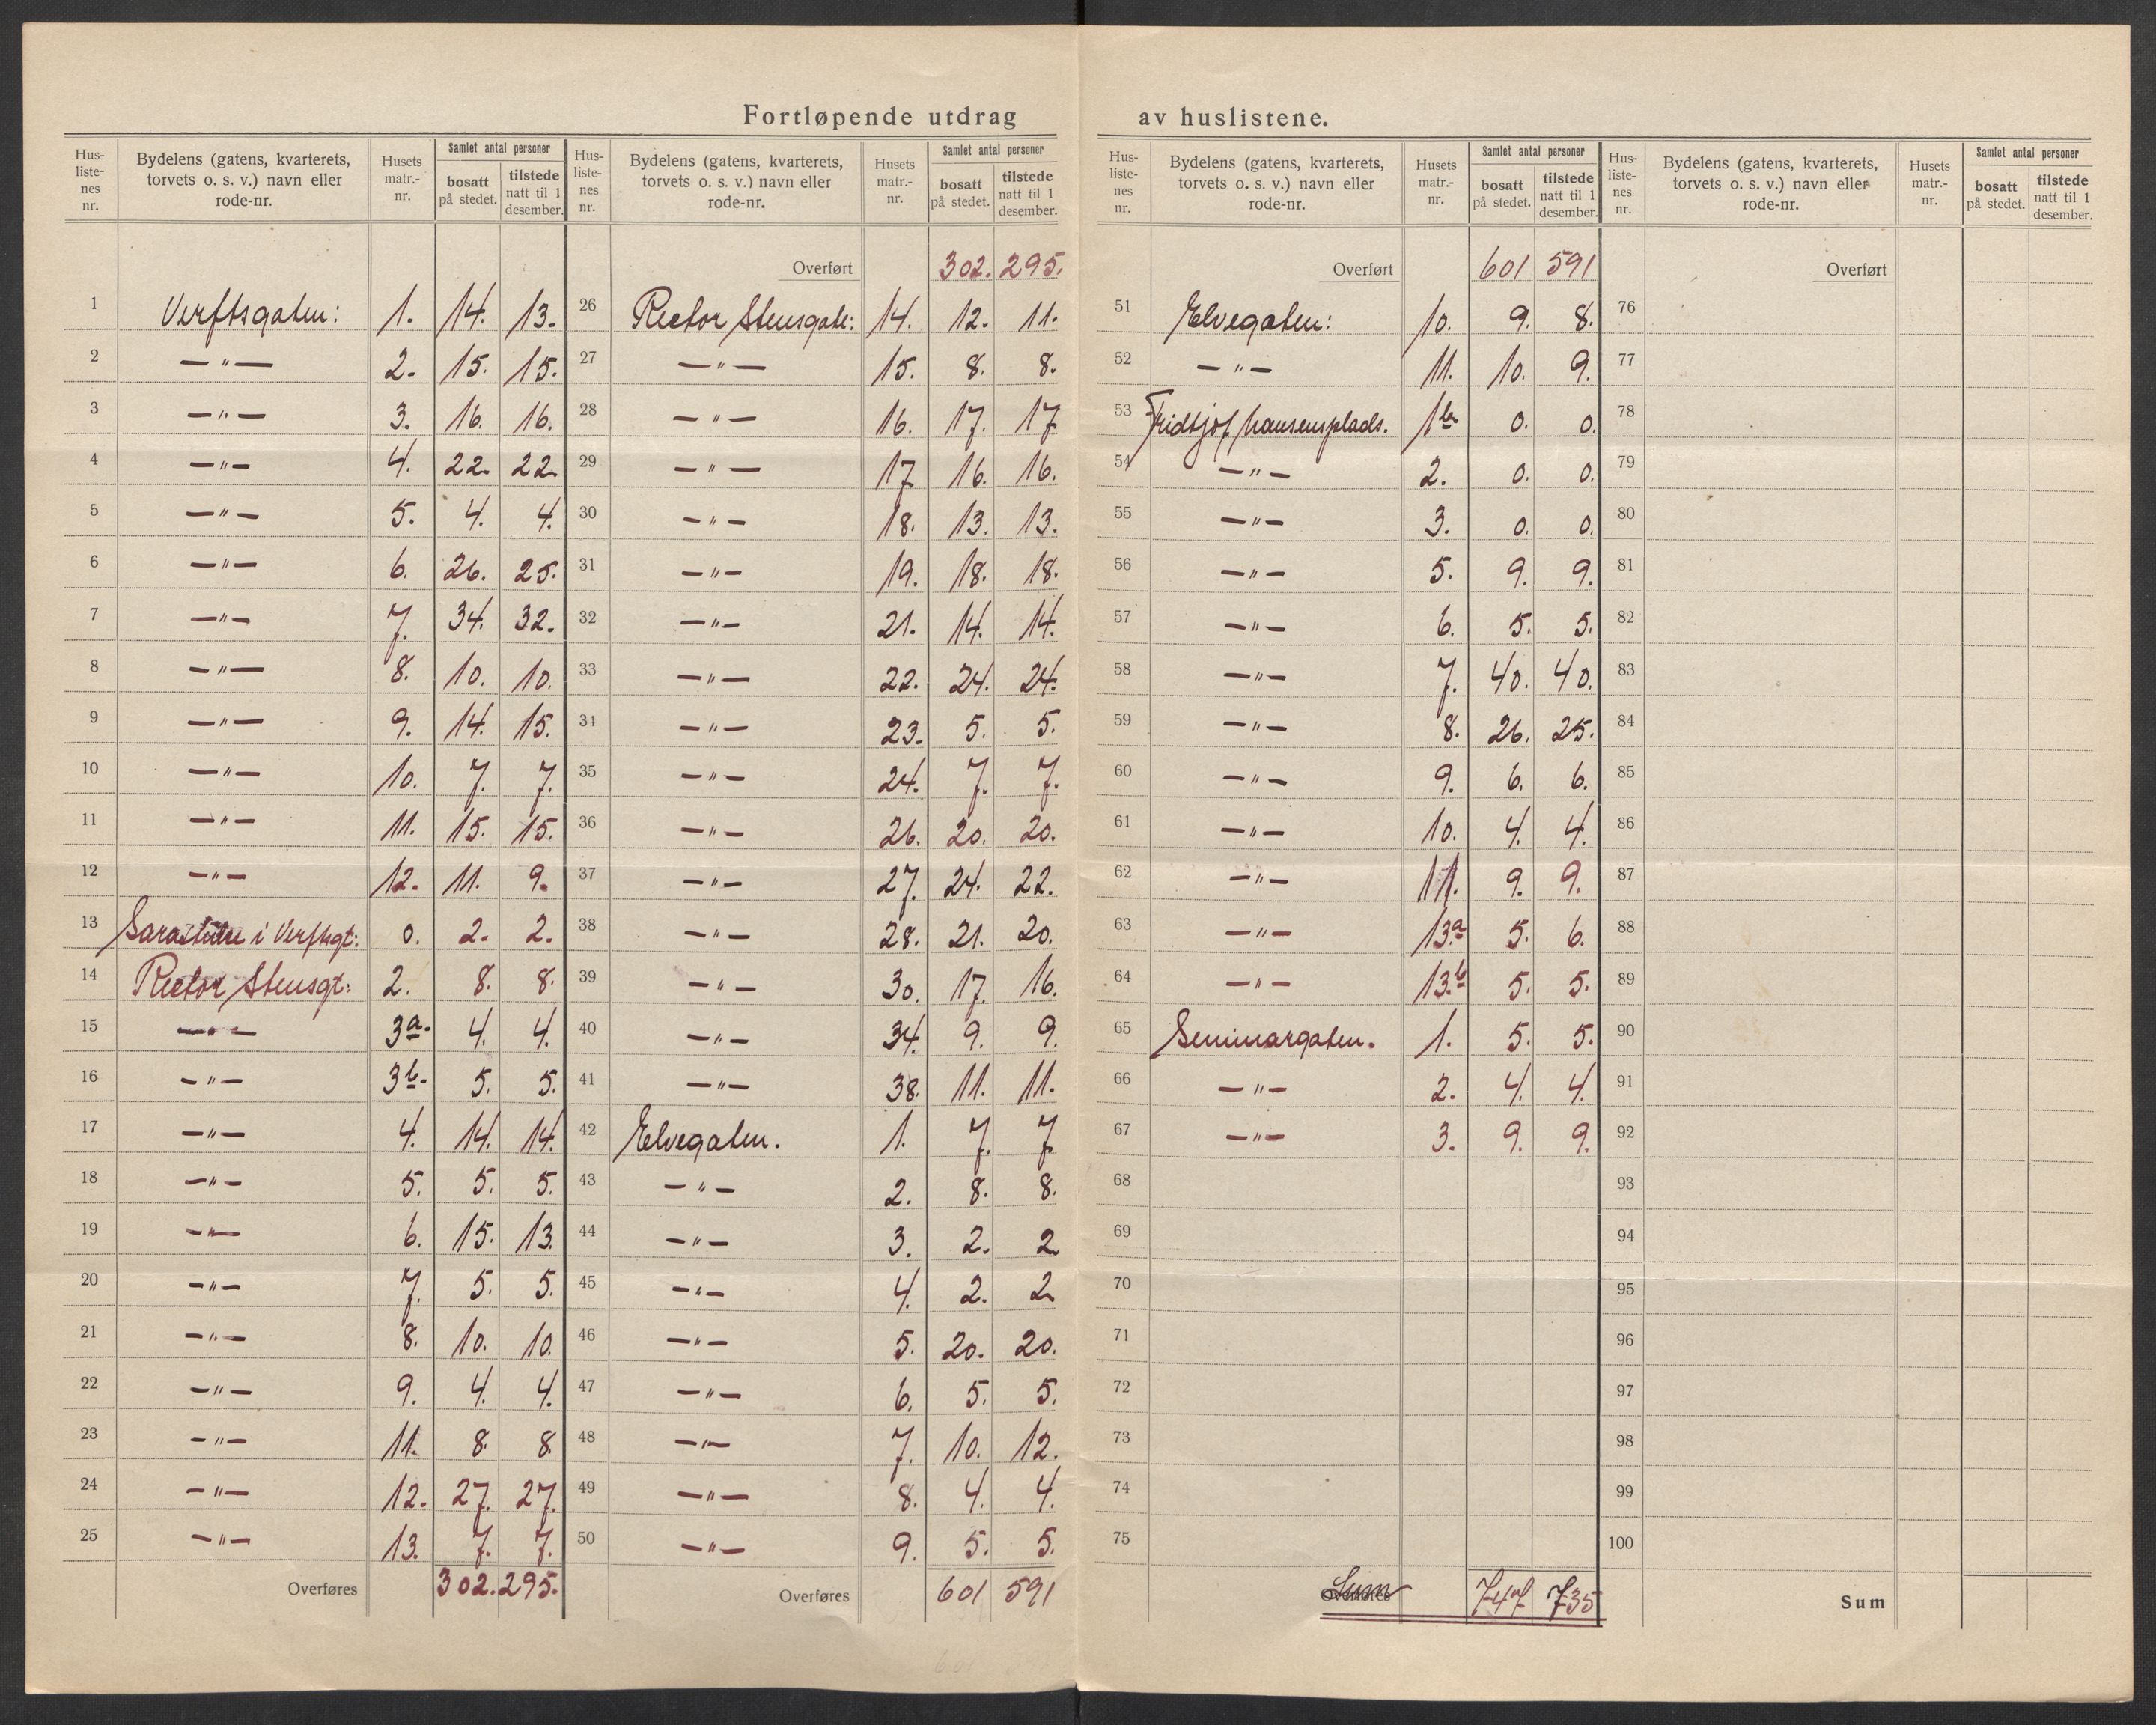 Fortløpende utdrag av huslistene.
Hus-liste-nes nr. | Bydelens (gatens, kvarterets, torvets o. s. v.) navn eller rode-nr. | Husets matr.-nr. | Samlet antal personer | bosatt på stedet. | tilstede natt til 1 desember.
1 Verftsgaten: 1. 14. 13.
2 —"— 2. 15. 15.
3 —"— 3. 16. 16.
4 —"— 4. 22. 22
5 —"— 5. 4. 4.
6 —"— 6. 26. 25.
7 —"— 7. 34. 32.
8 —"— 8. 10. 10.
9 —"— 9. 14. 15.
10 —"— 10. 7. 7.
11 —"— 11. 15. 15.
12 —"— 12. 11. 9.
13 i Verftsgt: 0. 2. 2.
14 Rector Stensgt: 2. 8. 8.
15 —"— 3a. 4. 4.
16 —"— 3b. 5. 5.
17 —"— 4. 14. 14.
18 —"— 5. 5. 5.
19 —"— 6. 15. 13.
20 —"— 7. 5. 5.
21 —"— 8. 10. 10.
22 —"— 9. 4. 4.
23 —"— 11. 8. 8.
24 —"— 12. 27. 27.
25 —"— 13. 7. 7.
Overføres 302. 295.
Hus-liste-nes nr. | Bydelens (gatens, kvarterets, torvets o. s. v.) navn eller rode-nr. | Husets matr.-nr. | Samlet antal personer | bosatt på stedet. | tilstede natt til 1 desember.
Overført 302. 295.
26 Rector Stensgate: 14. 12. 11.
27 —"— 15. 8. 8.
28 —"— 16. 17. 17
29 —"— 17 16. 16.
30 —"— 18. 13. 13.
31 —"— 19. 18. 18.
32 —"— 21. 14. 14.
33 —"— 22. 24. 24.
34 —"— 23. 5. 5.
35 —"— 24. 7. 7.
36 —"— 26. 20. 20.
37 —"— 27. 24. 22.
38 —"— 28. 21. 20.
39 —"— 30. 17. 16.
40 —"— 34. 9. 9.
41 —"— 38. 11. 11.
42 Elvegaten. 1. 7. 7
43 —"— 2. 8. 8.
44 —"— 3. 2. 2
45 —"— 4. 2. 2
46 —"— 5. 20. 20.
47 —"— 6. 5. 5.
48 —"— 7. 10. 12.
49 —"— 8. 4. 4.
50 —"— 9. 5. 5.
Overføres 601 591
Hus-liste-nes nr. | Bydelens (gatens, kvarterets, torvets o. s. v.) navn eller rode-nr. | Husets matr.-nr. | Samlet antal personer | bosatt på stedet. | tilstede natt til 1 desember.
Overført 601 591
51 Elvegaten: 10. 9. 8.
52 —"— 11. 10. 9.
53 Fridtjof Nansensplads. 1b 0. 0.
54 —"— 2. 0. 0.
55 —"— 3. 0. 0.
56 —"— 5. 9. 9.
57 —"— 6. 5. 5.
58 —"— 7. 40. 40.
59 —"— 8. 26. 25.
60 —"— 9. 6. 6.
61 —"— 10. 4. 4.
62 —"— 11. 9. 9.
63 —"— 13a 5. 6.
64 —"— 13.b 5. 5.
65 Seminargaten. 1. 5. 5.
66 —"— 2. 4. 4.
67 —"— 3. 9. 9.
68
69
70
71
72
73
74
75
Overføres Sum 747 735
Hus-liste-nes nr. | Bydelens (gatens, kvarterets, torvets o. s. v.) navn eller rode-nr. | Husets matr.-nr. | Samlet antal personer | bosatt på stedet. | tilstede natt til 1 desember.
Overført
76
77
78
79
80
81
82
83
84
85
86
87
88
89
90
91
92
93
94
95
96
97
98
99
100
Sum